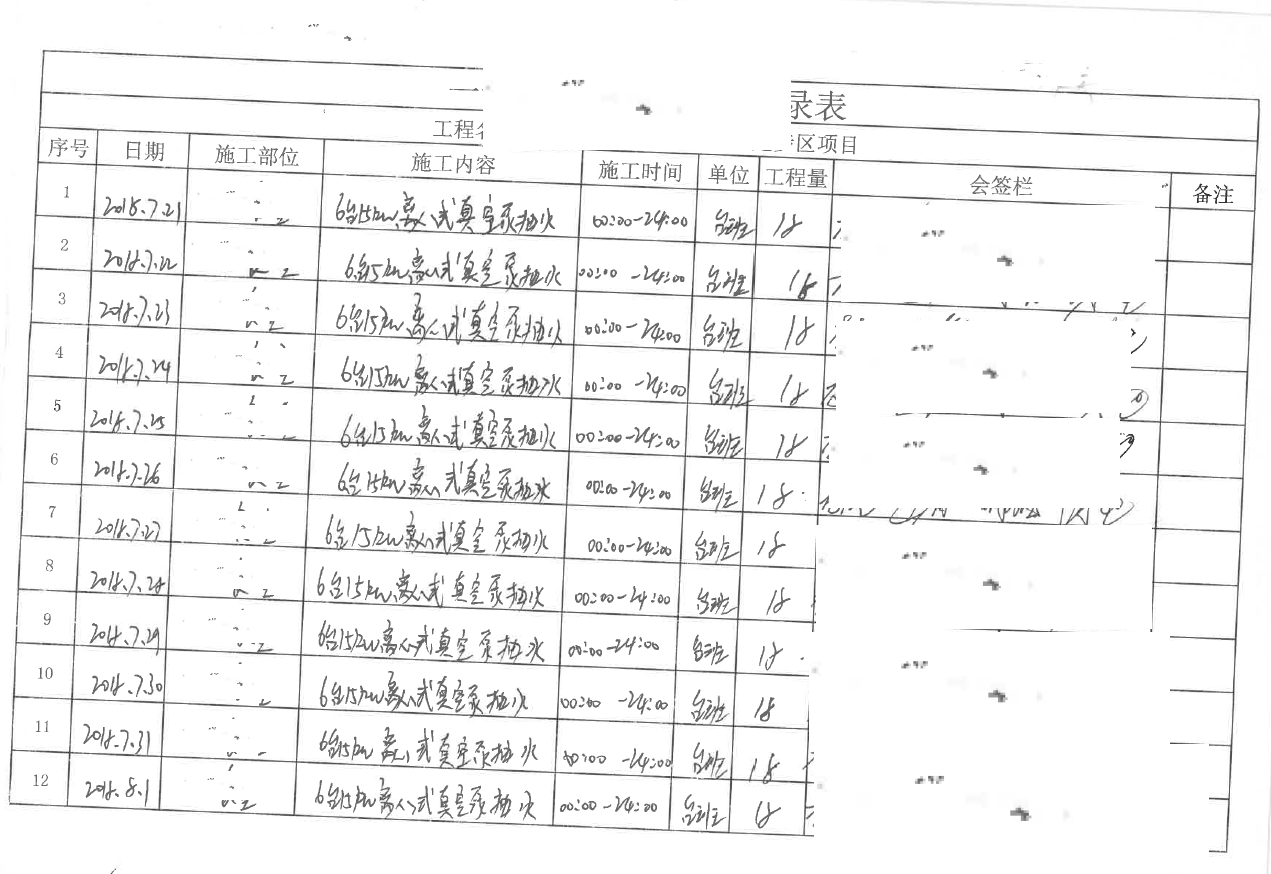 录表
工程名 区项目
序号 日期 施工部位 施工内容 施工时间 单位 工程量 会签栏 备注
1 2018.7.21 6台15kw离心式真空泵抽水 00:00-24:00 台班 18
2 2018.7.22 6台15kw离心式真空泵抽水 00:00-24:00 台班 18
3 2018.7.23 6台15kw离心式真空泵抽水 00:00-24:00 台班 18
4 2018.7.24 6台15kw离心式真空泵抽水 00:00-24:00 台班 18
5 2018.7.25 6台15kw离心式真空泵抽水 00:00-24:00 台班 18
6 2018.7.26 6台15kw离心式真空泵抽水 00:00-24:00 台班 18
7 2018.7.27 6台15kw离心式真空泵抽水 00:00-24:00 台班 18
8 2018.7.28 6台15kw离心式真空泵抽水 00:00-24:00 台班 18
9 2018.7.29 6台15kw离心式真空泵抽水 00:00-24:00 台班 18
10 2018.7.30 6台15kw离心式真空泵抽水 00:00-24:00 台班 18
11 2018.7.31 6台15kw离心式真空泵抽水 00:00-24:00 台班 18
12 2018.8.1 6台15kw离心式真空泵抽水 00:00-24:00 台班 18